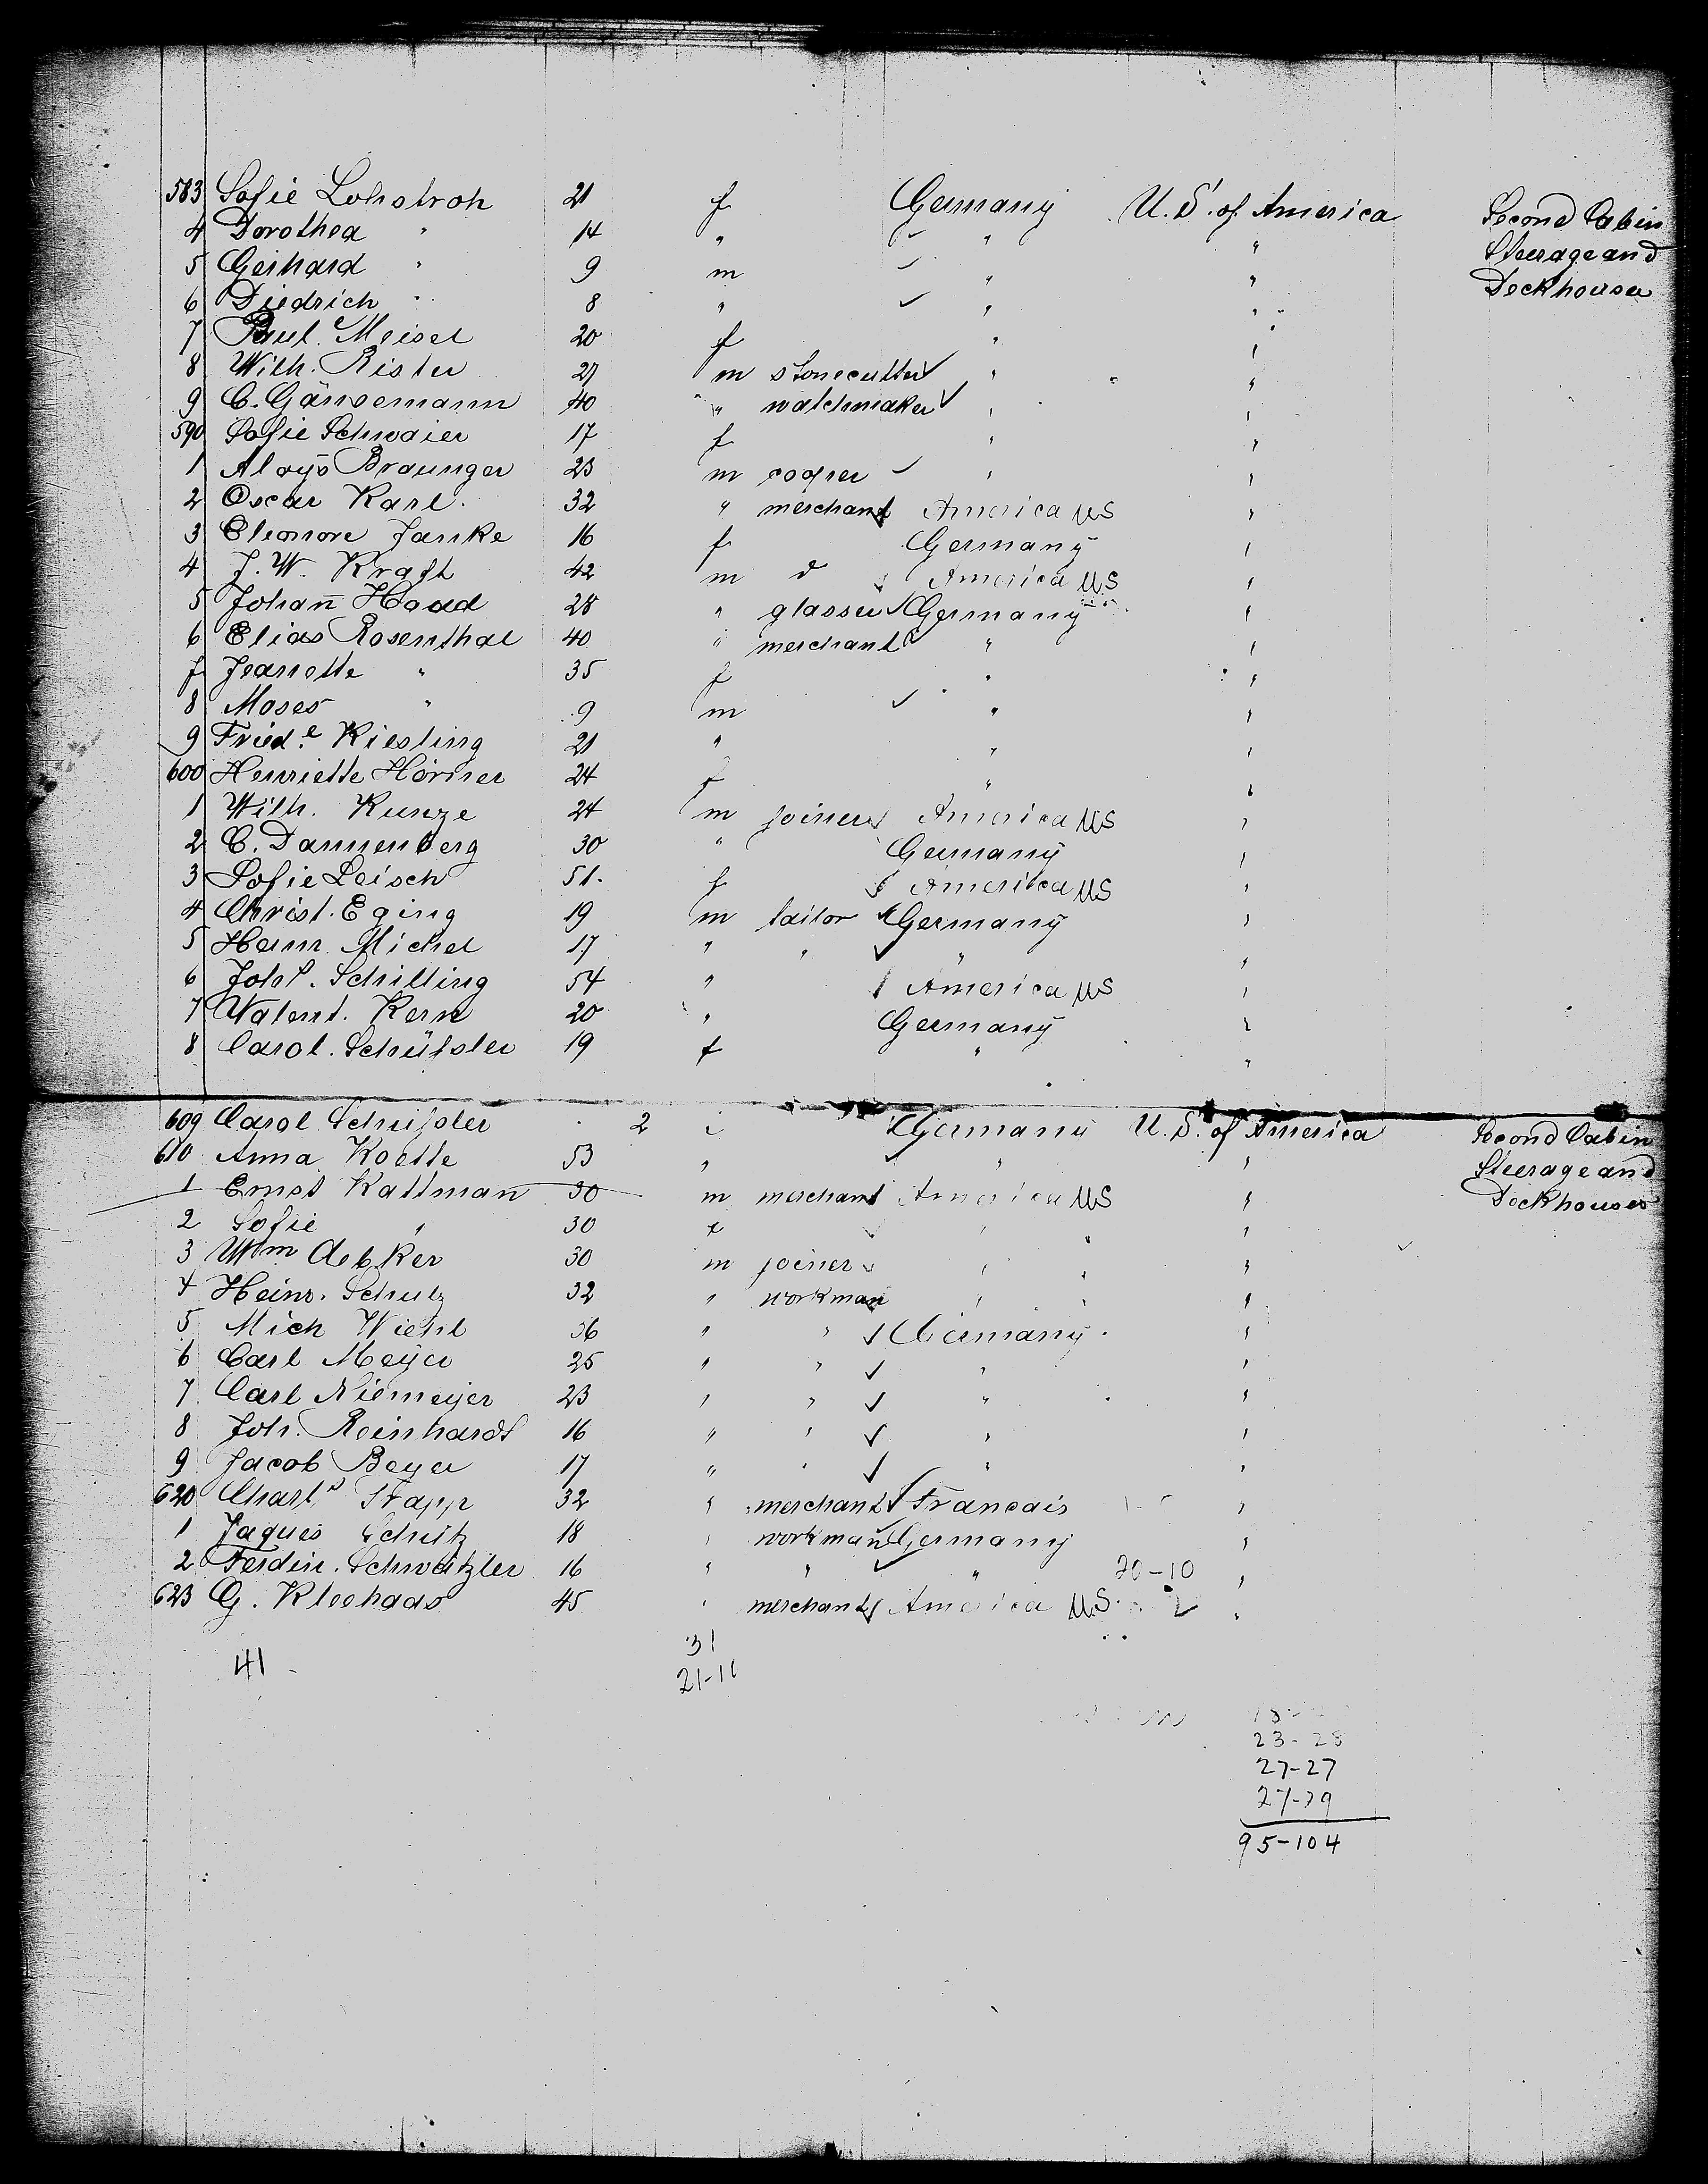 583 Sofie Lohstroh 21 f Germany U. S. of America Second Cabin
4 Dorothea " 14 " " " Steerage and
5 Gerhard " 9 m " " Deckhouse
6 Diedrich " 8 " " "
7 Paul. Meisel 20 f " "
8 Wilh. Rister 27 m stonecutter " "
9 C. Gänsemann 40 " watchmaker " "
590 Sofie Schwaier 17 f " "
1 Aloys Braunger 23 m cooper " "
2 Oscar Karl. 32 " merchant America US "
3 Eleonore Janke 16 f Germany "
4 J. W. Kraft 42 m America US "
5 Johañ Haad 28 " glasser Germany "
6 Elias Rosenthal 40 " merchant " "
7 Jeanette " 35 f " "
8 Moses " 9 m " "
9 Fried.e Kiesling 21 " " "
600 Henriette Hörner 24 f " "
1 Wilh. Kunze 24 m joiner America US "
2 C. Dannenberg 30 " Germany "
3 Sofie Leisch 51. f America US "
4 Christ. Eging 19 m tailor Germany "
5 Heinr. Michel 17 " " " "
6 Joh. Schilling 54 " America US "
7 Valent. Kern 20 " Germany "
8 Carol. Schüssler 19 f " "
609 Carol Schüssler 2 Germany U. S. of America Second Cabin
610 Anna Koette 53 " " " Steerage and
1 Ernst Kattman 30 m merchant America US " Deckhouses
2 Sofie " 30 f " "
3 Wm Aebker 30 m joiner " "
4 Heinr. Schulz 32 " workman " "
5 Mich Wiehl 36 " " Germany "
6 Carl Meyer 25 " " " "
7 Carl Niemeyer 23 " " " "
8 Joh. Reinhardt 16 " " " "
9 Jacob Beyer 17 " " " "
620 Charls Trapp 32 " merchant Francais "
1 Jaques Schutz 18 " workman Germany "
2 Ferdin. Schwätzler 16 " " " 20-10 "
623 G. Kleehaas 45 " merchant America U.S. "
31
41
21-11
23-28
27-27
95-104